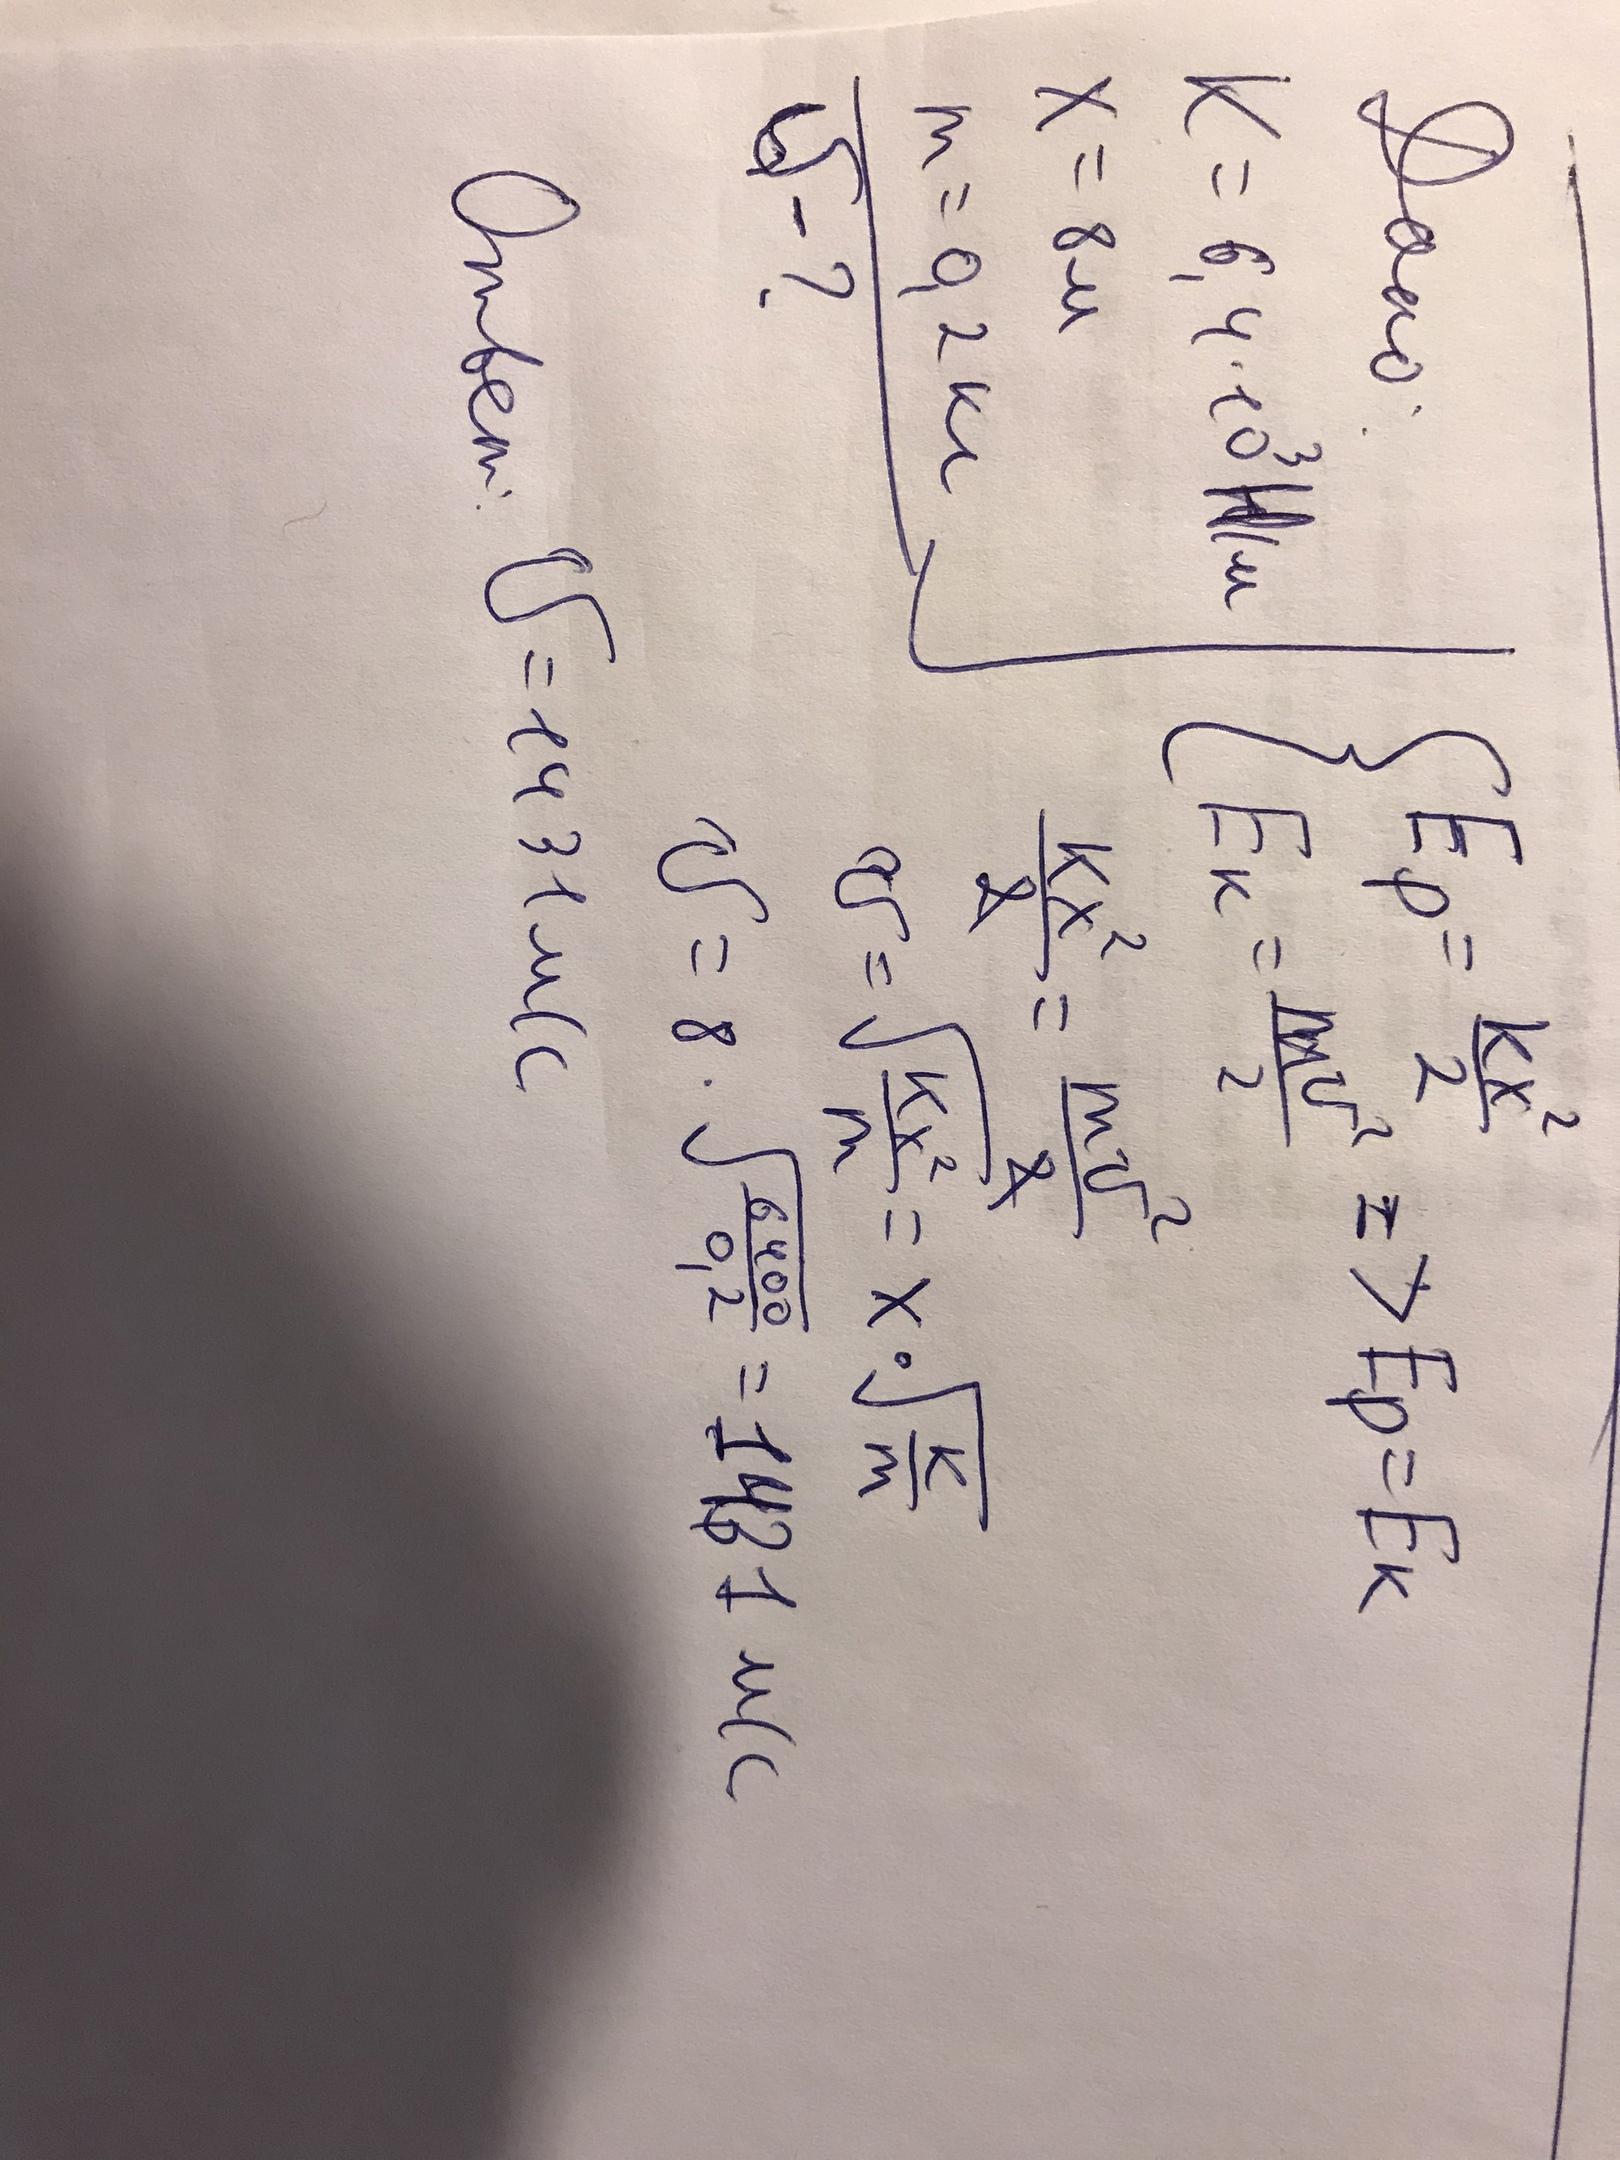 Дано:
K = 6,4·10³ Н/м
x = 8м
m = 0,2 кг
υ - ?
Ep = kx²/2
Eк = mυ²/2 => Ep = Eк
kx²/2 = mυ²/2
υ = √(kx²/m) = x·√(k/m)
υ = 8·√(6400/0,2) = 1431 м/с
Ответ: υ = 1431 м/с